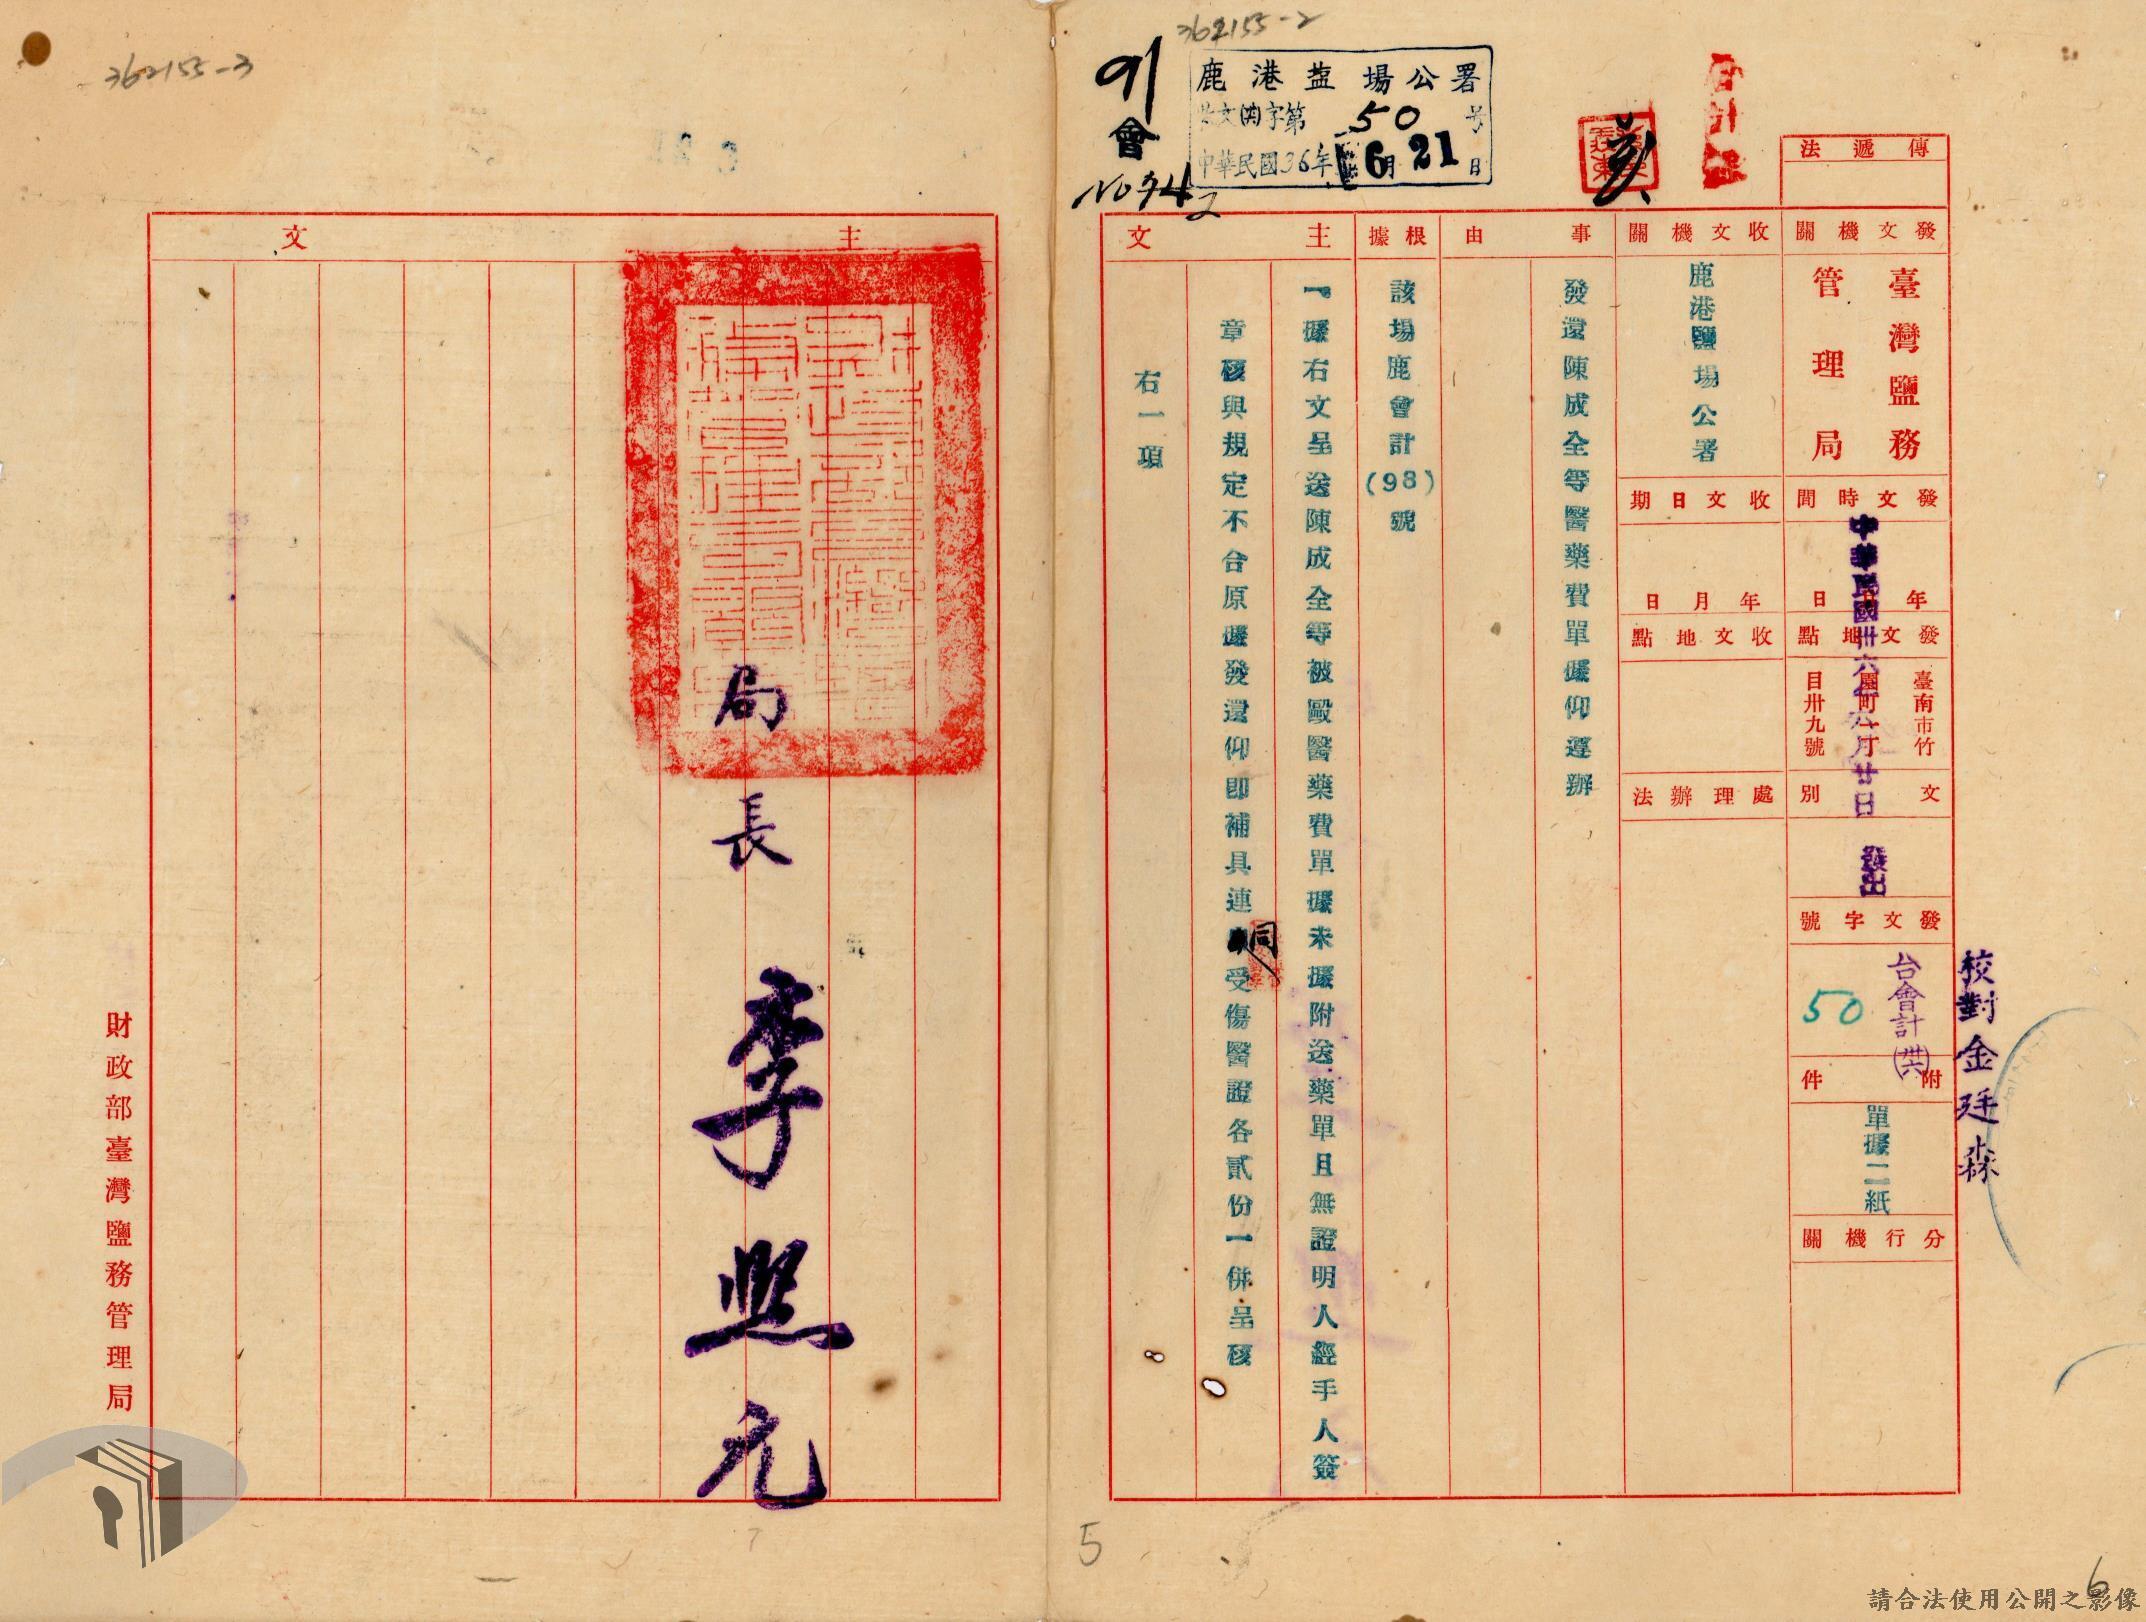 362155-2
91
會
No 94
2
鹿港塩場公署
收文(卅六)字第50号
中華民國36年6月21日
會計課
傳遞法
發文機關
臺灣鹽務管理局
發文時間
年月日
中華民國卅六年六月廿日發出
發文地點
臺南市竹園町一丁目卅九號
文別
發文字號
台會計(卅六)
50
附件
單據二紙
分行機關
校對金廷森
收文機關
鹿港鹽場公署
收文日期
年月日
收文地點
處理辦法
事由
發還陳成全等醫藥費單據仰遵辦
根據
該場鹿會計(98)號
主文
一據右文呈送陳成全等被毆醫藥費單據未據附送藥單且無證明人經手人簽
章核與規定不合原據發還仰即補具連同受傷醫證各貳份一併呈核
右一項
5
6
362155-3
主文
局長 李熙元
財政部臺灣鹽務管理局
請合法使用公開之影像